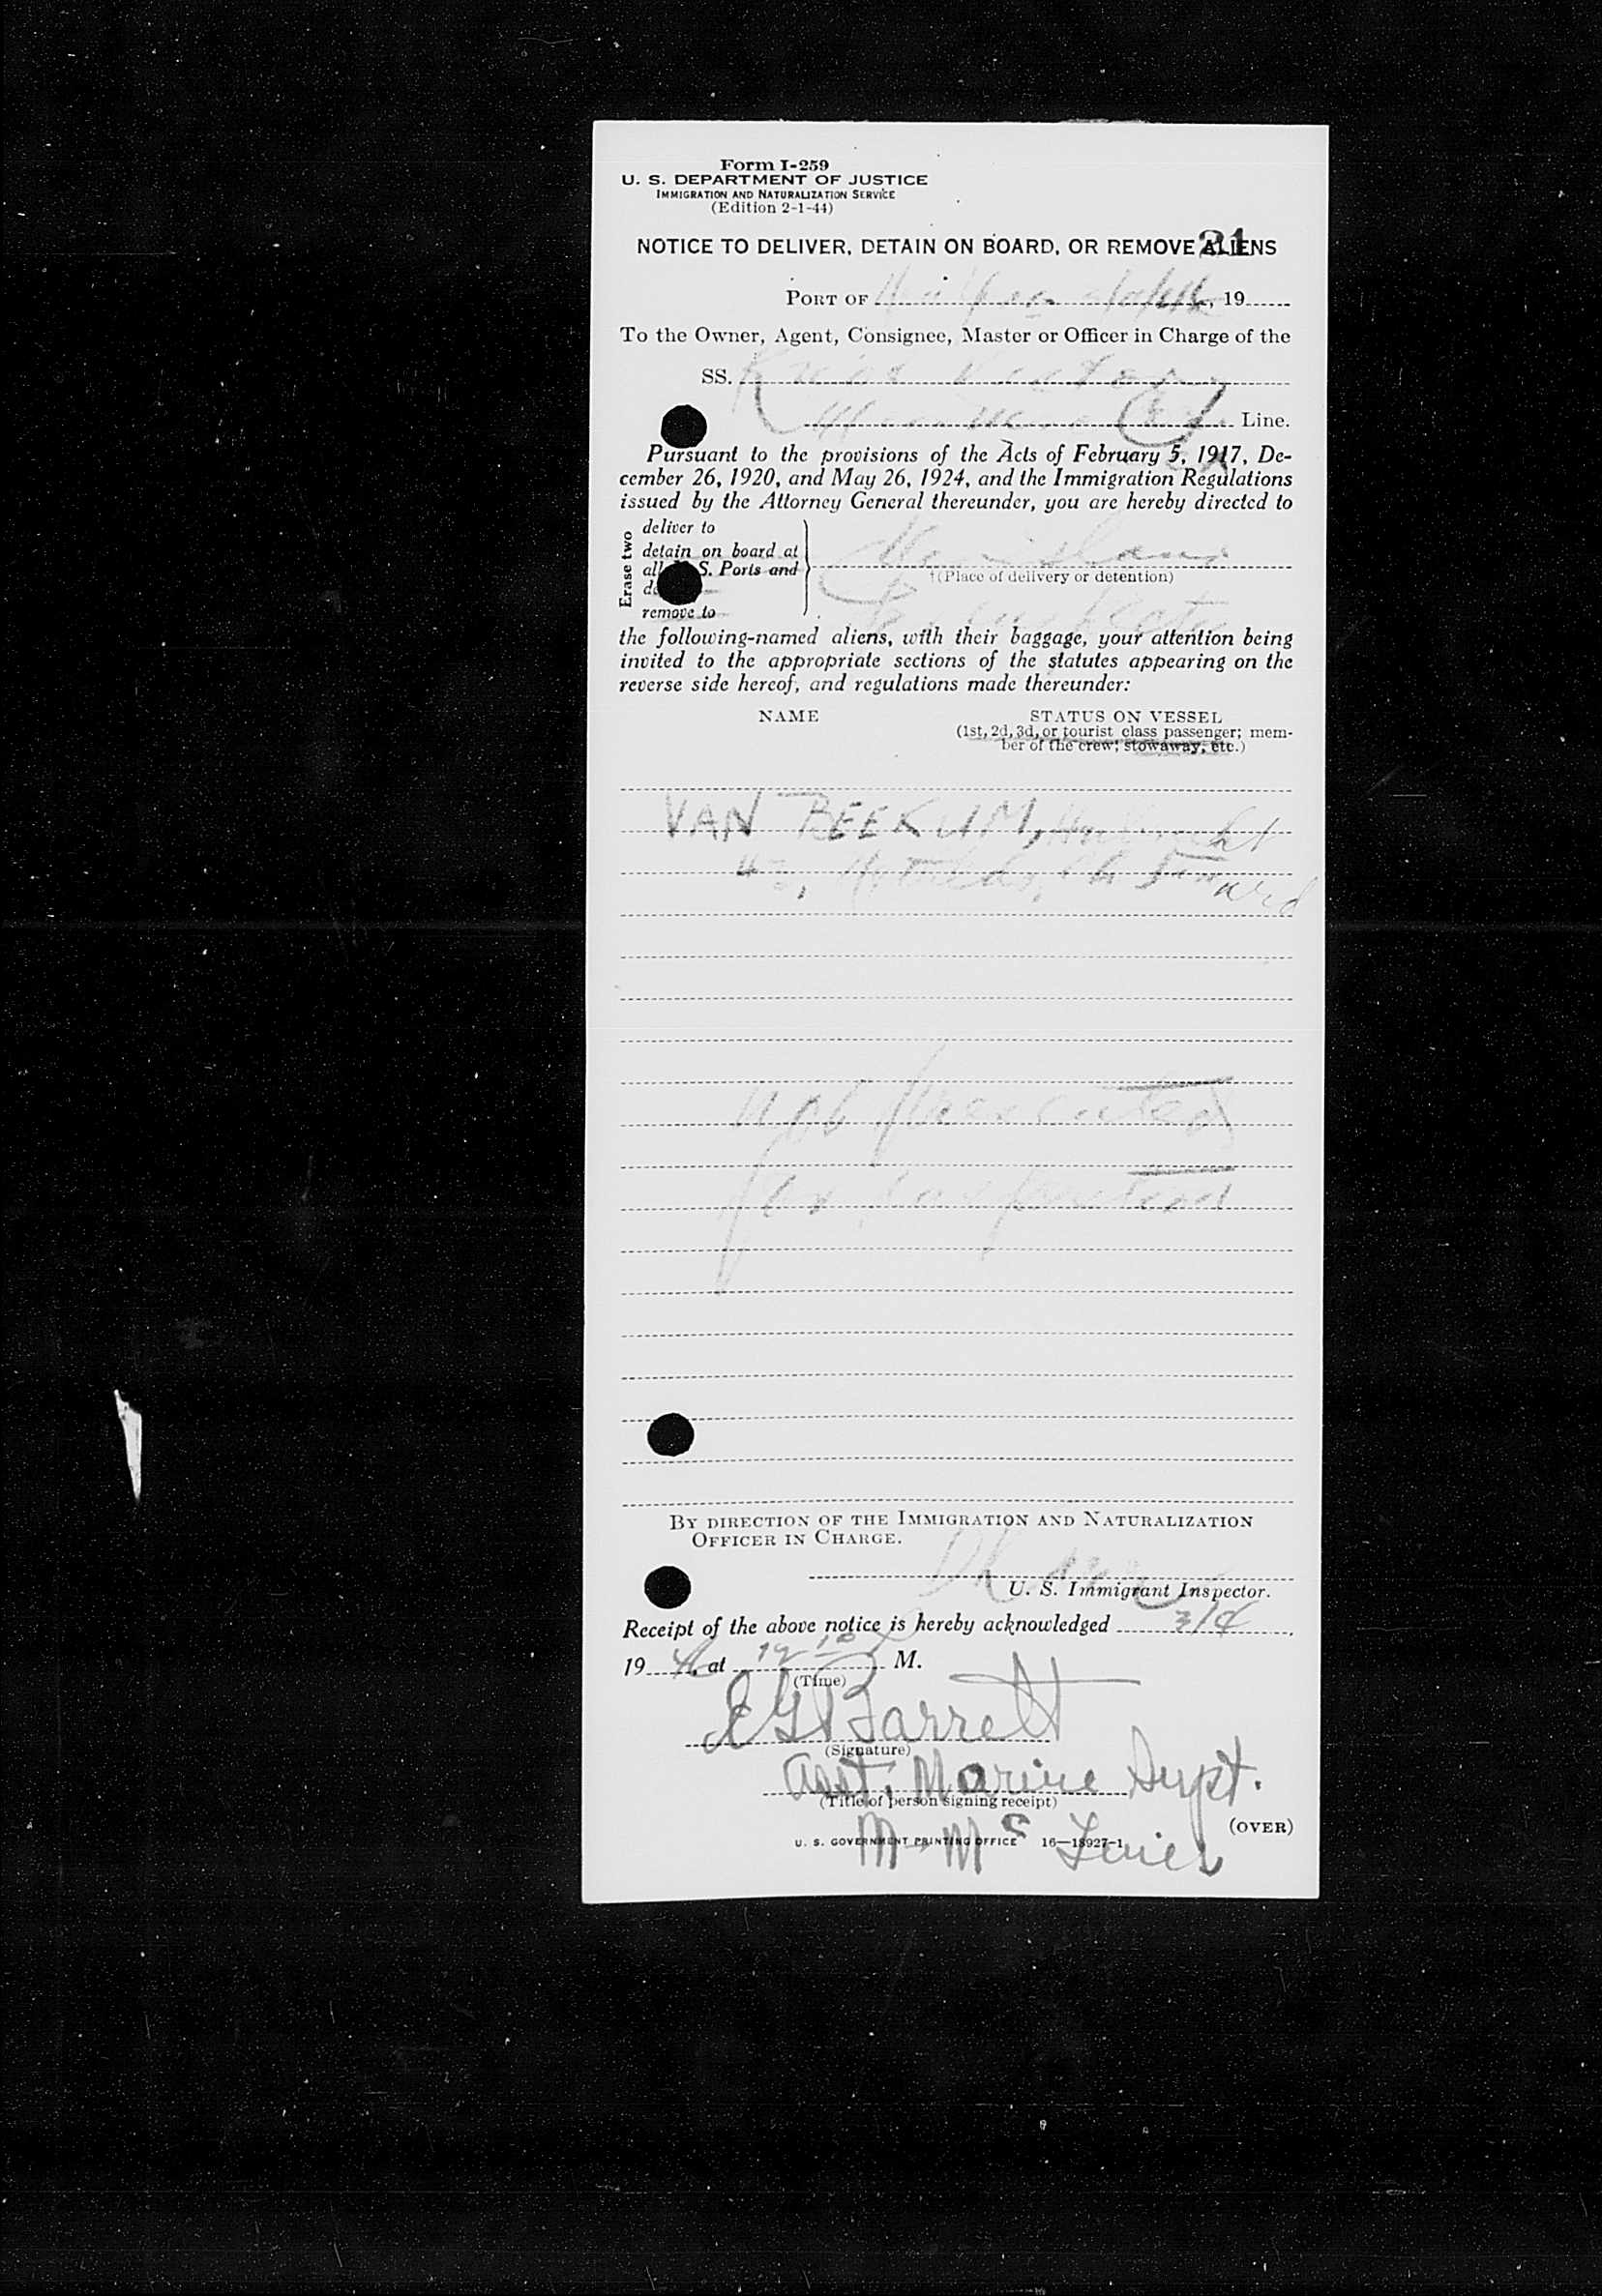 Form I-259
U. S. DEPARTMENT OF JUSTICE
IMMIGRATION AND NATURALIZATION SERVICE
(Edition 2-1-44)
NOTICE TO DELIVER, DETAIN ON BOARD, OR REMOVE ALIENS
21
PORT OF , 19
To the Owner, Agent, Consignee, Master or Officer in Charge of the
SS.
Line.
Pursuant to the provisions of the Acts of February 5, 1917, De-
cember 26, 1920, and May 26, 1924, and the Immigration Regulations
issued by the Attorney General thereunder, you are hereby directed to
Erase two
deliver to
detain on board at
all S. Ports and
remove to
†(Place of delivery or detention)
the following-named aliens, with their baggage, your attention being
invited to the appropriate sections of the statutes appearing on the
reverse side hereof, and regulations made thereunder:
NAME STATUS ON VESSEL
(1st, 2d, 3d, or tourist class passenger; mem-
ber of the crew; stowaway, etc.)
VAN BEEKUM,
not presented
for inspection
BY DIRECTION OF THE IMMIGRATION AND NATURALIZATION
OFFICER IN CHARGE.
U. S. Immigrant Inspector.
Receipt of the above notice is hereby acknowledged 3/4,
1946, at M.
(Time)
E G Barrett
(Signature)
Asst. Marine Supt.
(Title of person signing receipt)
(OVER)
U. S. GOVERNMENT PRINTING OFFICE 16—18927-1
M-Mc Lines